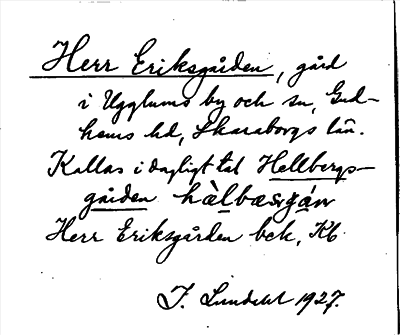 Herr Eriksgården, gård
i Ugglums by och sn, Gud-
hems hd, Skaraborgs län.
Kallas i dagligt tal Hellbergs-
gården hàlbæsgán
Herr Eriksgården bek, Kb
J. Lundahl 1927.